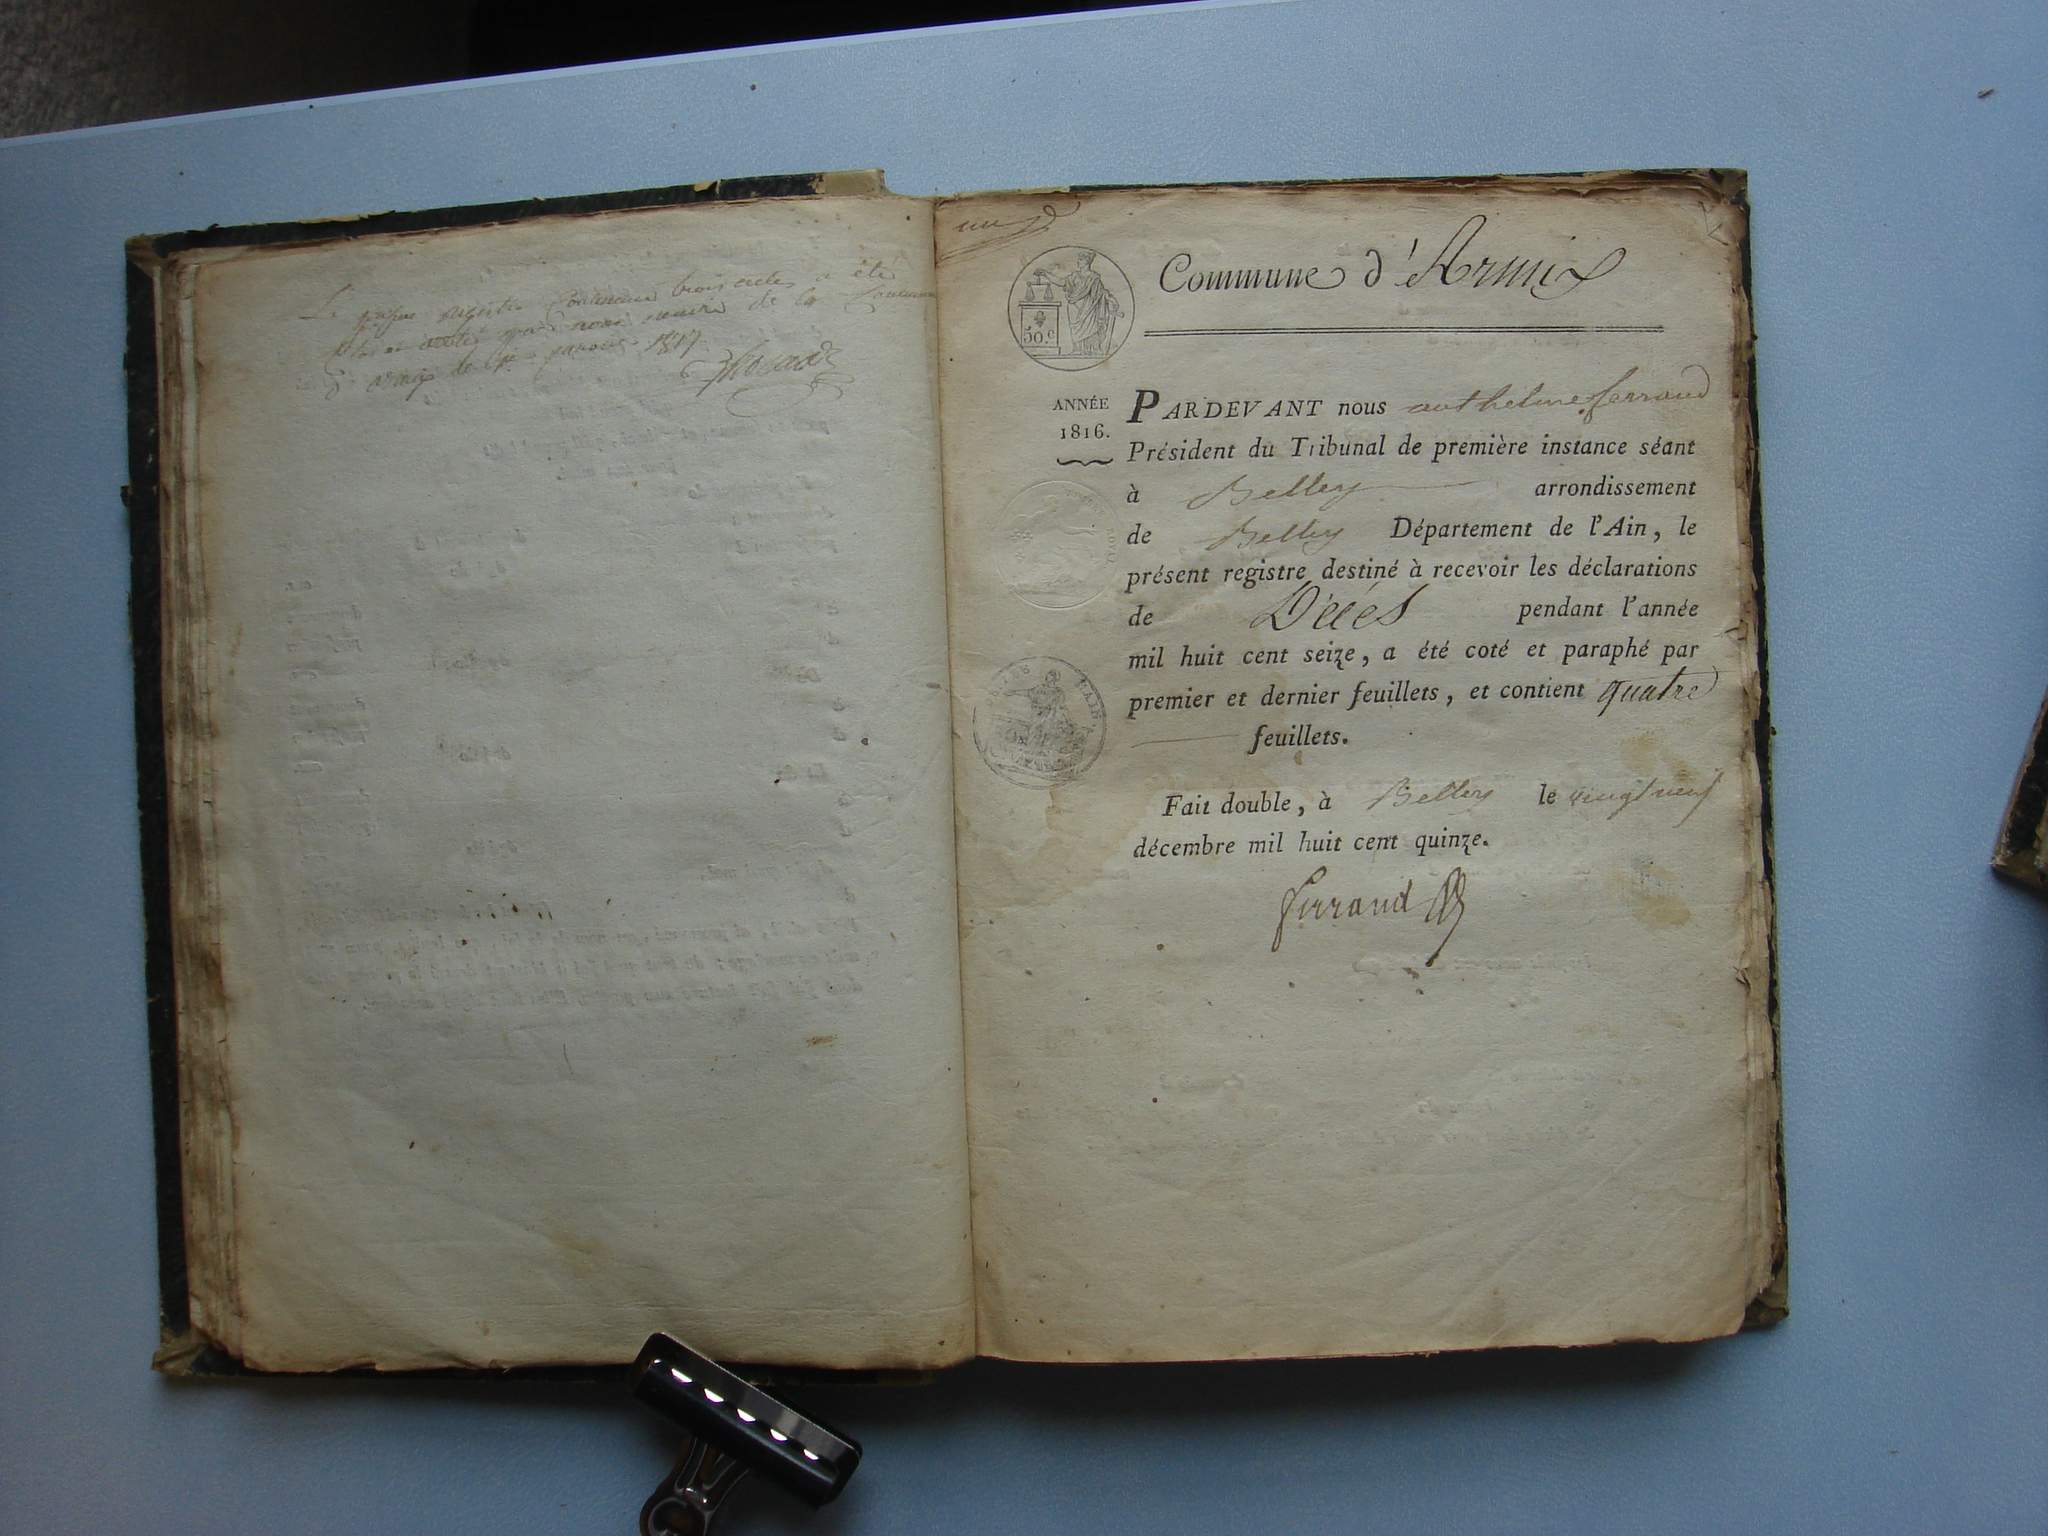 Le présent registre Contenant trois actes a été
clos et arrêté par nous maire de la Commune
d'armix le 1er janvier 1817
un
Commune d'Armix
50.c
ANNÉE
1816.
PARDEVANT nous anthelme ferrand
Président du Tribunal de première instance séant
à Belley arrondissement
de Belley Département de l'Ain, le
présent registre destiné à recevoir les déclarations
de Décés pendant l'année
mil huit cent seize, a été coté et paraphé par
premier et dernier feuillets, et contient quatre
feuillets.
Fait double, à Belley le vingt neuf
décembre mil huit cent quinze.
ferrand